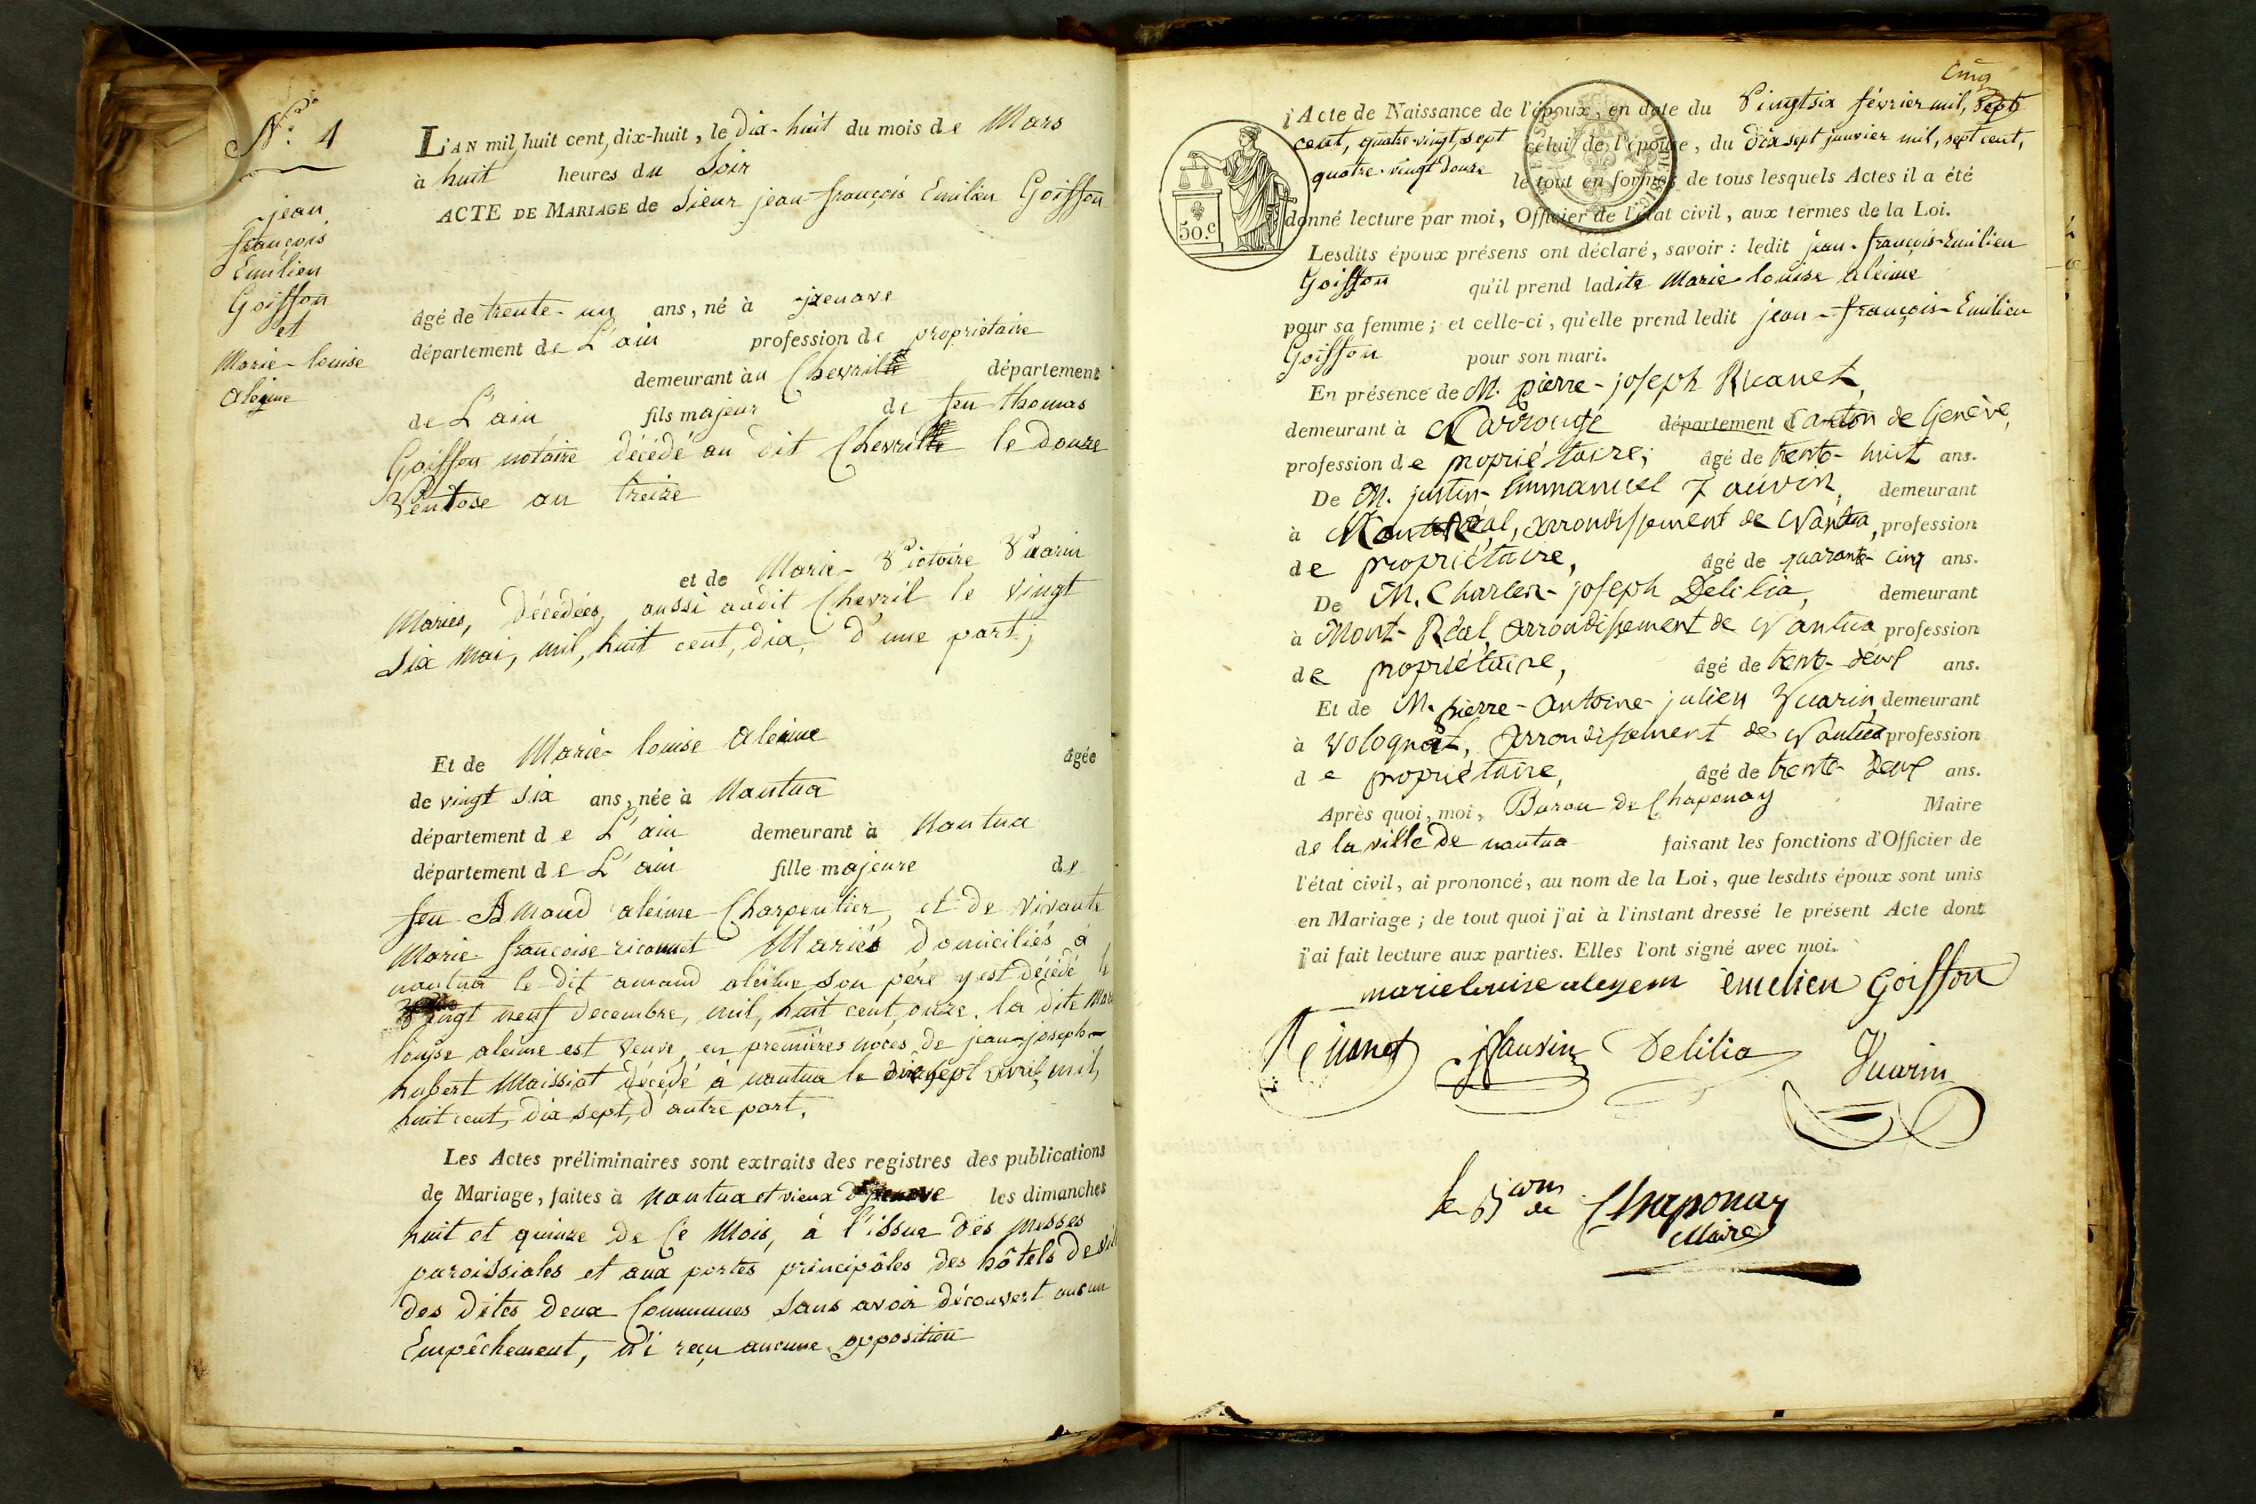 N.° 4
jean
françois
Emilien
Goiffon
et
Marie-louise
aleime
L'AN mil huit cent, dix-huit, le dix-huit du mois de Mars
à huit heures du Soir
ACTE DE MARIAGE de Sieur jean-françois Emilien Goiffon
âgé de trente-un ans, né à izenave
département de L'ain profession de propriétaire
demeurant au Chevril département
de L'ain fils majeur de feu thomas
Goiffon notaire décédé au dit Chevril le douze
Ventose an treize
et de Marie-Victoire Vuarin
Mariés, décédées, aussi audit Chevril le vingt
Six mai, mil, huit cent, dix, d'une part;
Et de Marie-louise aleime âgée
de vingt Six ans, née à Nantua
département de L'ain demeurant à Nantua
département de L'ain fille majeure de
feu Amand aleime Charpentier, et de vivante
Marie françoise ricannet Mariés domiciliés à
nantua le dit amand aleime Son père y est décédé le
vingt neuf decembre, mil, huit cent, onze. la dite Marie
louise aleime est veuve en premières noces de jean-joseph-
hubert Maissiat décédé à nantua le dix sept avril, mil,
huit cent, dix sept, d'autre part.
Les Actes préliminaires sont extraits des registres des publications
de Mariage, faites à Nantua et vieux d'izenave les dimanches
huit et quinze de Ce Mois, à l'issue des Messes
paroissiales et aux portes principales des hôtels de
des dites deux Communes Sans avoir découvert aucun
Empêchement, ni reçu aucune opposition
cinq
l'Acte de Naissance de l'époux, en date du Vingtsix février mil, Sept
cent, quatre-vingt, sept celui de l'épouse, du dix sept janvier mil, sept cent,
quatre-vingt douze le tout en forme; de tous lesquels Actes il a été
donné lecture par moi, Officier de l'état civil, aux termes de la Loi.
50.c
Lesdits époux présens ont déclaré, savoir: ledit jean-françois-Emilien
Goiffon qu'il prend ladite Marie-louise aleime
pour sa femme; et celle-ci, qu'elle prend ledit jean-françois-Emilien
Goiffon pour son mari.
En présence de M. pierre-joseph Ricanet,
demeurant à Carrouge département Canton de Genève,
profession de propriétaire, âgé de trente-huit ans.
De M. justin-Emmanuel Jauvin, demeurant
à Montréal, arrondissement de Nantua, profession
de propriétaire, âgé de quarante-cinq ans.
De M. Charles-joseph Delilia, demeurant
à Mont-Réal, arrondissement de Nantua profession
de propriétaire, âgé de trente-deux ans.
Et de M. pierre-antoine-julien Vuarin, demeurant
à Volognat, arrondissement de Nantua profession
de propriétaire, âgé de trente-deux ans.
Après quoi, moi, Baron de Chaponay Maire
de la ville de nantua faisant les fonctions d'Officier de
l'état civil, ai prononcé, au nom de la Loi, que lesdits époux sont unis
en Mariage; de tout quoi j'ai à l'instant dressé le présent Acte dont
j'ai fait lecture aux parties. Elles l'ont signé avec moi.
marie louise aleyem emelien Goiffon
Jauvin Delilia Vuarin
le Bon de Chaponay
Maire